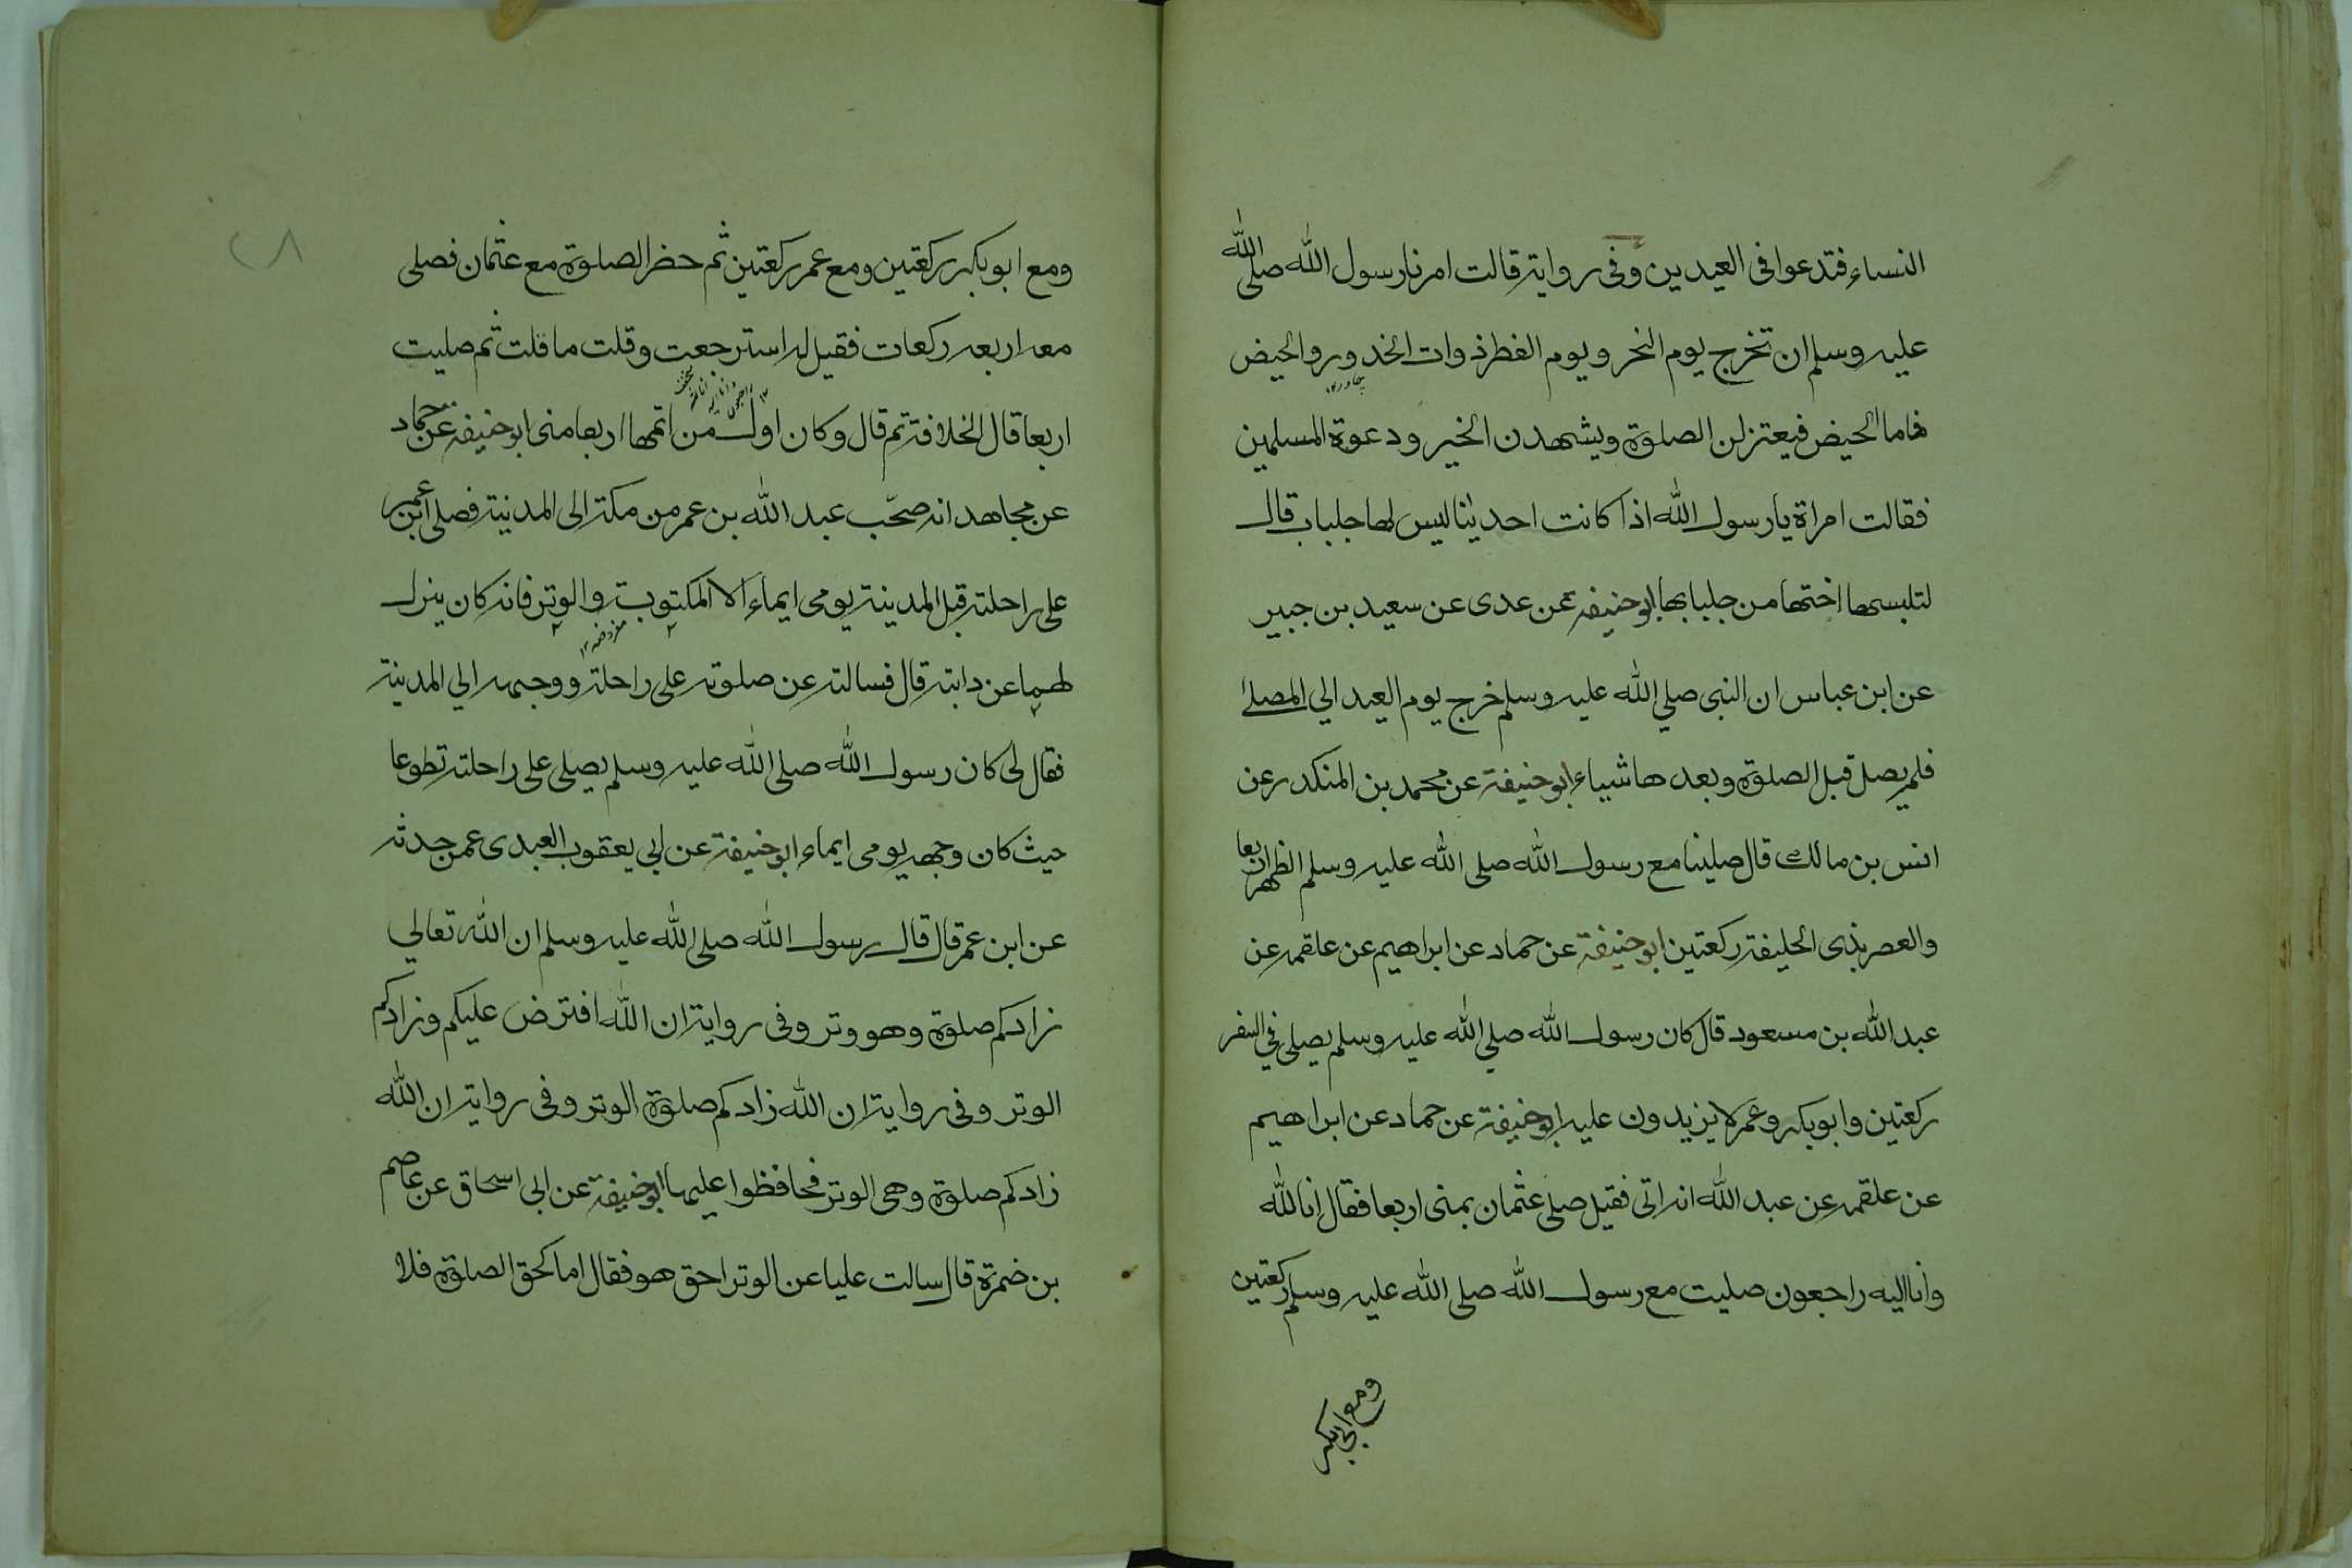 النساء فتدعوا فى العيدين وفى رواية قالت امرنا رسول الله صلى الله
عليه وسلم ان تخرج يوم النحر ويوم الفطر ذوات الخدور والحيض
فاما الحيض فيعتزلن الصلوة ويشهدن الخير ودعوة المسلمين
فقالت امراة يا رسول الله اذا كانت احدينا ليس لها جلباب قال
لتلبسها اختها من جلبابها ابو حنيفه عن عدى عن سعيد بن جبير
عن ابن عباس ان النبى صلي الله عليه وسلم خرج يوم العيد الي المصلے
فلم يصل قبل الصلوة وبعدها شيياء ابو حنيفة عن محمد بن المنكدر عن
انس بن مالك قال صلينا مع رسول الله صلى الله عليه وسلم الظهر اربعا
والعصر بذى الحليفة ركعتين ابو حنيفة عن حماد عن ابراهيم عن علقمه عن
عبد الله بن مسعود قال كان رسول الله صلي الله عليه وسلم يصلي في السفر
ركعتين وابو بكر وعمر لا يزيدون عليه ابو حنيفة عن حماد عن ابراهيم
عن علقمه عن عبد الله انه اتى فقيل صلى عثمان بمنى اربعا فقال انا لله
وانا اليه راجعون صليت مع رسول الله صلى الله عليه وسلم ركعتين
ومع ابى بكر
٢٨
ومع ابو بكر ركعتين ومع عمر ركعتين ثم حضر الصلوة مع عثمان فصلى
معه اربعه ركعات فقيل له استرجعت وقلت ما قلت ثم صليت
اربعا قال الخلافة ثم قال وكان اول من اتمها اربعا منى ابو حنيفه عن حماد
عن مجاهد انه صحب عبد الله بن عمر من مكة الى المدنية فصلى ابن عمر
على راحلته قبل المدينة يومى ايماء الا المكتوبة والوتر فانه كان ينزل
لهما عن دابته قال فسالته عن صلوته على راحلة ووجهه الي المدنية
فقال لى كان رسول الله صلى الله عليه وسلم يصلى على راحلته تطوعا
حيث كان وجهه يومى ايماء ابو حنيفة عن ابي يعقوب العبدى عمن حدثه
عن ابن عمر قال قال رسول الله صلى الله عليه وسلم ان الله تعالي
زادكم صلوة وهو وتر وفى رواية ان الله افترض عليكم وزادكم
الوتر وفى رواية ان الله زادكم صلوة الوتر وفى رواية ان الله
زادكم صلوة وهى الوتر فحافظوا عليها ابو حنيفة عن ابى اسحاق عن عاصم
بن ضمرة قال سالت عليا عن الوتر احق هو فقال اما كحق الصلوة فلا